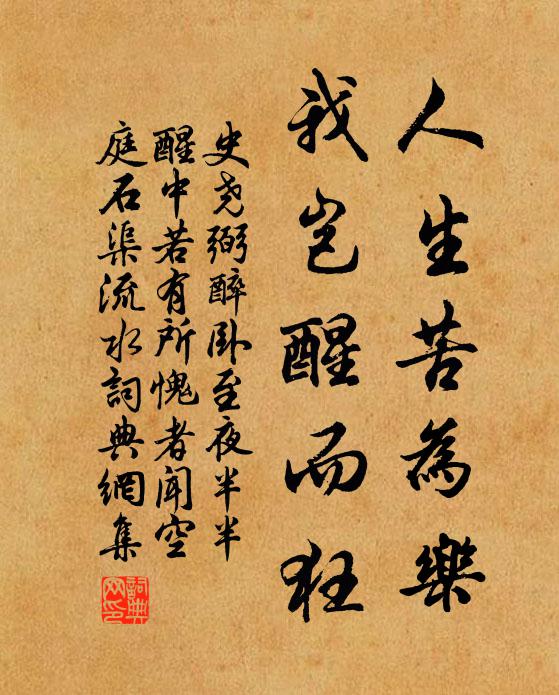 人生苦為樂
我岂醒而狂
史尧弼醉卧至夜半半
醒中若有所愧者闻空
庭石渠流水詞典網集
詞典
网印